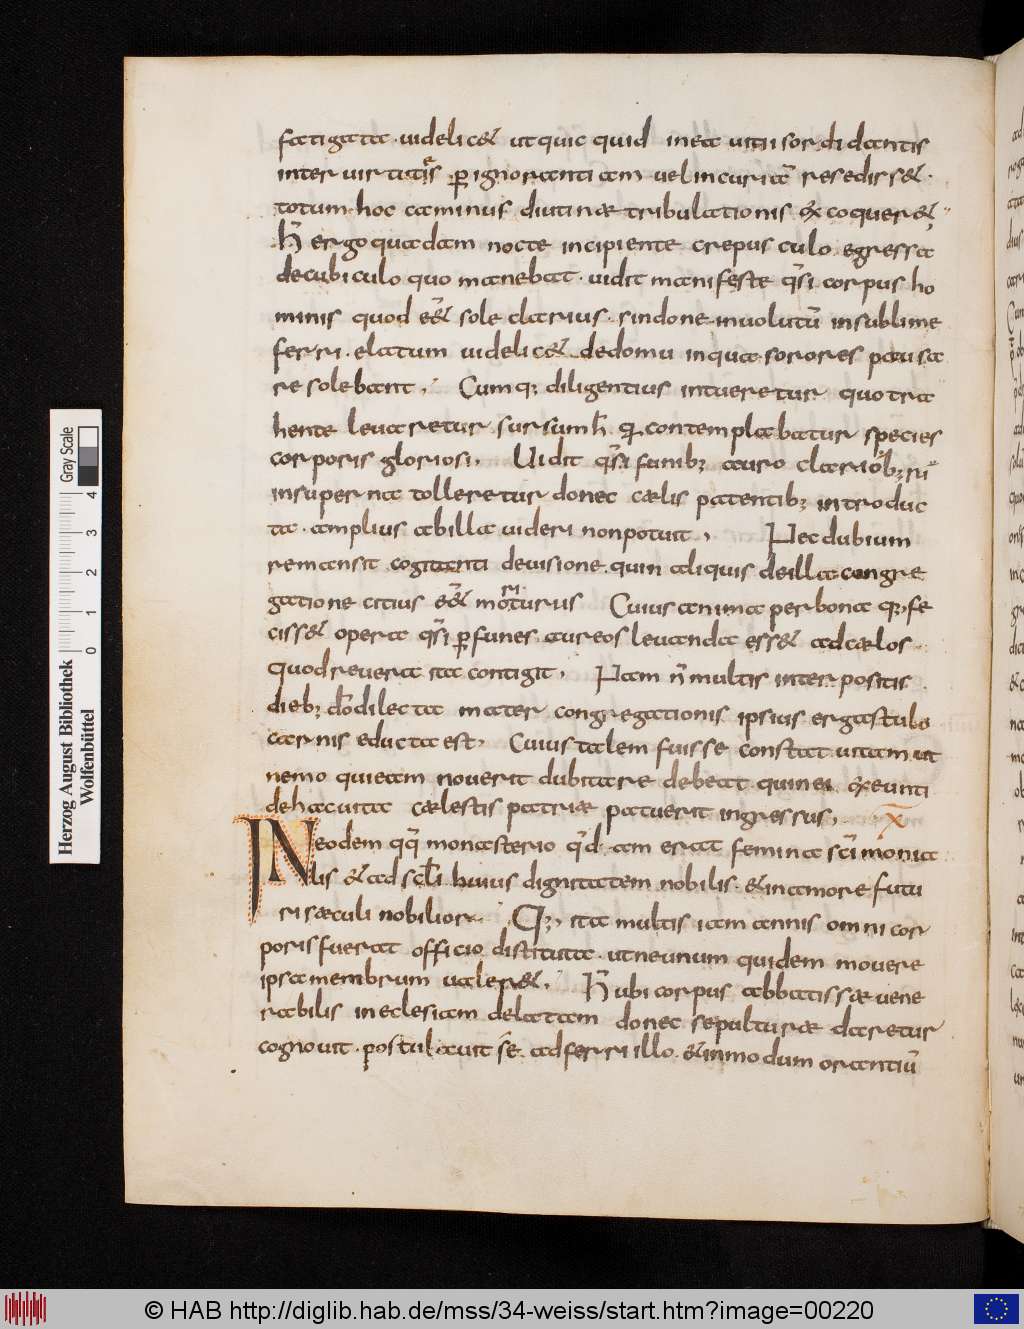 fatigata · uidelic& ut quic quid in ea uitii sor di dantis
inter uirtutes p̱ ignorantiam uel incuriā resedirs& ·
totum hoc caminus diutinæ tribulationis excoquer& ·
h̄ ergo quadam nocte incipiente crepusculo egressa
de cubiculo quo manebat · uidit manifeste q̄si corpus ho
minis quod e&̄ sole clarius · sindone inuolutū in sublime
ferri · elatum uidelic& de domu in qua sorores pausa
re solebant · Cumq; diligentius intueretur quo tra
hente leuaretur sursum h̄ q contemplabatur species
corporis gloriosi · Uidit q̄si funib; auro clariorib;
in superna tolleretur donec cælis patentib; introduc
ta · amplius ab illa uideri non potuit , Nec dubium
remansit cogitanti de uisione quin aliquis de illa congre
gatione citius e&̄ moriturus Cuius anima per bona q; fe
ciss& opera q̄si p̱ funes aureos leuanda ess& ad cælos ·
quod reuera ita contigit , Nam n̄ multis inter positis
dieb; d̄o dilecta mater congregationis ipsius ergastulo
carnis educta est , Cuius talem fuisse constat uitam ut
nemo qui eam nouerit dubitare debeat quin ei exeunti
de hac uita cælestis patriæ patuerit ingressus , x̄
IN eodem qq̄ monasterio q̄d am erat femina sc̄i monia
lis & ad sc̄l̄i huius dignitatem nobilis · & in amore futu
ri sæculi nobilior · Q; ita multis iam annis omni cor
poris fuerat officio distituta · ut ne unum quidem mouere
ipsa membrum ualer& , h̄ ubi corpus abbatissæ uene
rabilis in eclesiam delatam donec sepulturæ daretur
cognouit · postulauit se adferri illo · & in modum orantiū
Herzog August Bibliothek
Wolfenbüttel
0 1 2 3 4
Gray Scale
© HAB http://diglib.hab.de/mss/34-weiss/start.htm?image=00220